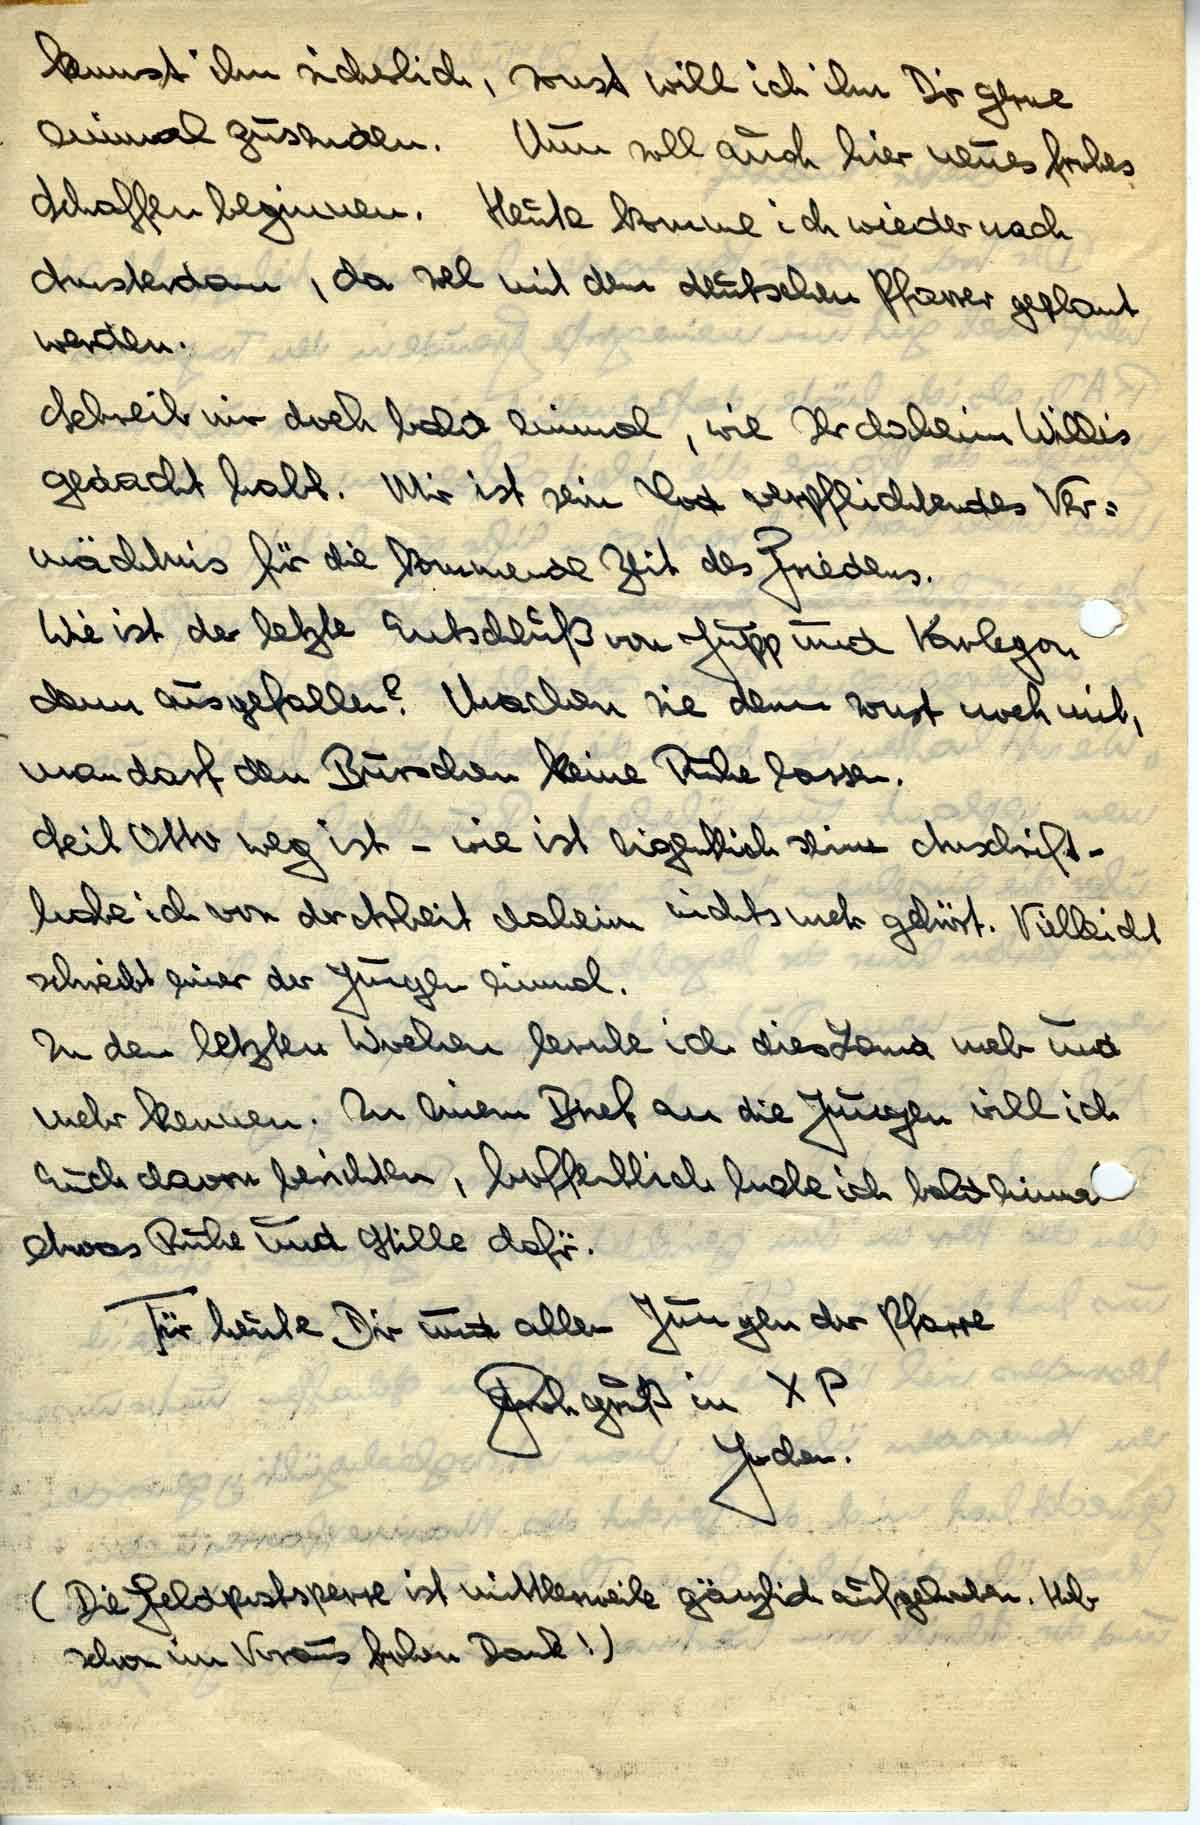 kennst ihn sicherlich, sonst will ich ihn Dir gerne
einmal zusenden. Nun soll auch hier neues frohes
Schaffen beginnen. Heute komme ich wieder nach
Amsterdam, da soll mit dem deutschen Pfarrer geplant
werden.
Schreib mir doch bald einmal, wie Ihr daheim Willis
gedacht habt. Mir ist sein Tod verpflichtendes Ver=
mächtnis für die kommende Zeit des Friedens.
Wie ist der letzte Entschluß von Jupp und Karlegon
dann ausgefallen? Machen sie denn sonst noch mit,
man darf den Burschen keine Ruhe lassen.
Seit Otto weg ist - wie ist eigentlich seine Anschrift -
habe ich von der Arbeit daheim nichts mehr gehört. Vielleicht
schreibt einer der Jungen einmal.
In den letzten Wochen lernte ich dies Land mehr und
mehr kennen. In einem Brief an die Jungen will ich
Euch davon berichten, hoffentlich habe ich bald einmal
etwas Ruhe und Stille dafür.
Für heute Dir und allen Jungen der Pfarre
Frohgruß in XP
Jochen.
(Die Feldpostsperre ist mittlerweile gänzlich aufgehoben. Hab
schon im Voraus frohen Dank!)